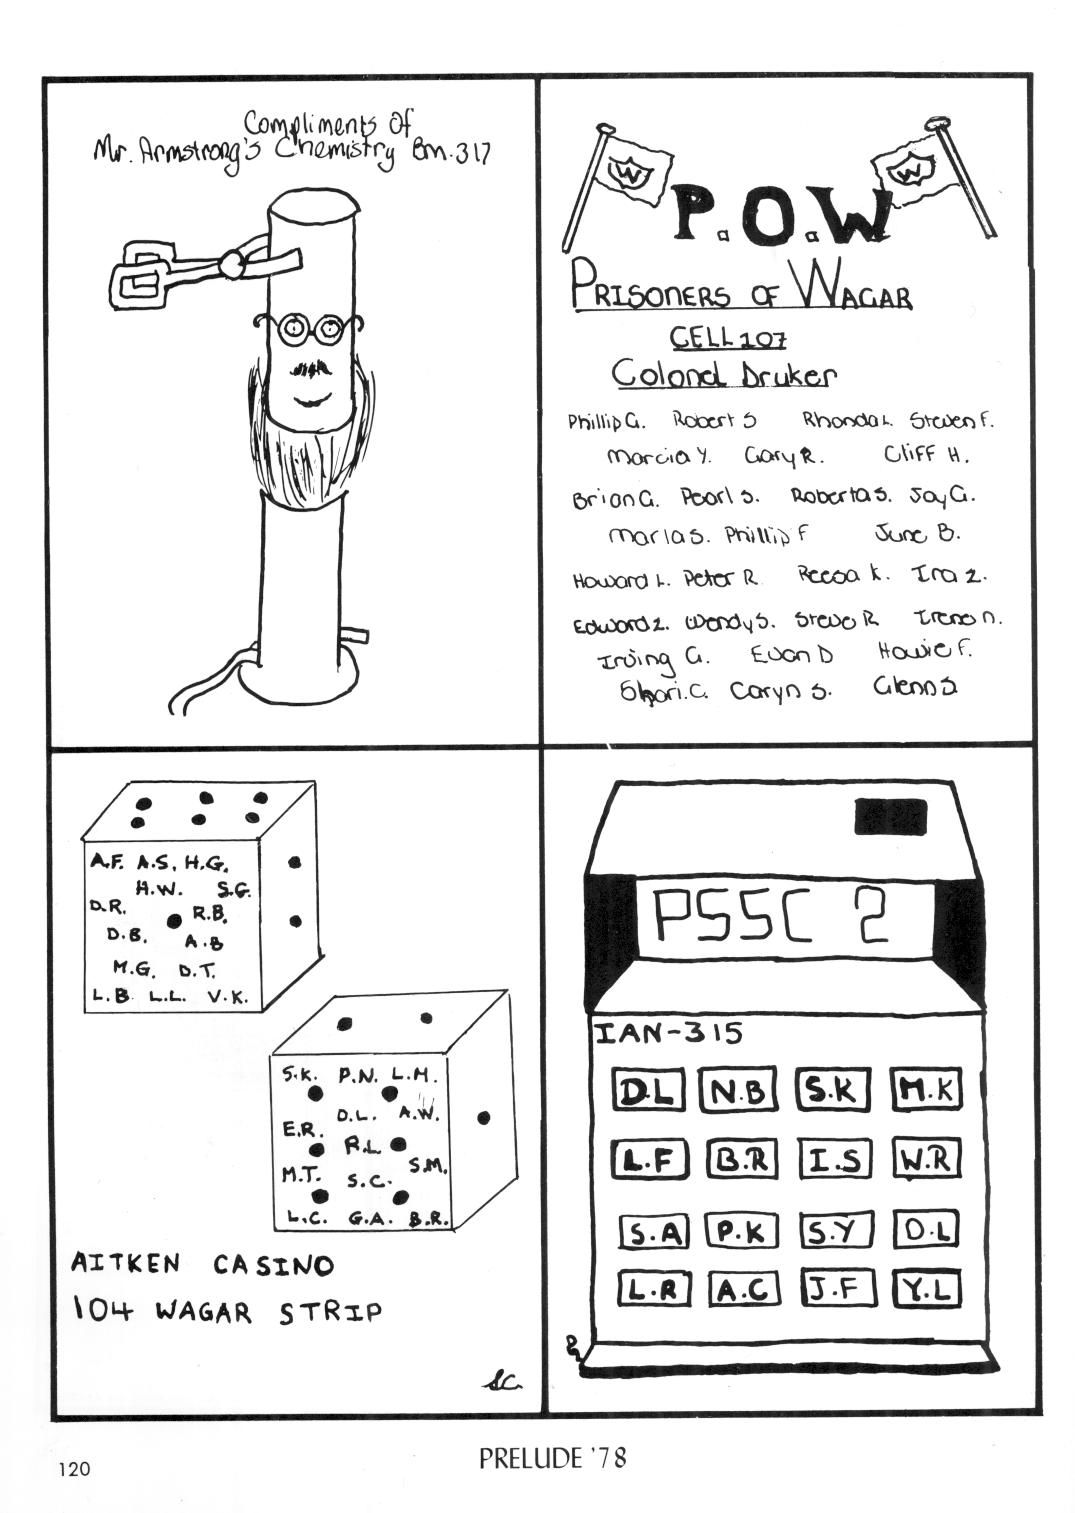 Compliments Of
Mr. Armstrong's Chemistry Bm. 317
W
W
P.O.W
PRISONERS OF WAGAR
CELL 107
Colonel Druker
Phillip G. Robert S Rhonda L. Steven F.
Marcia Y. Gary R. Cliff H.
Brian G. Pearl S. Roberta S. Jay G.
Marla S. Phillip F June B.
Howard L. Peter R. Reesa K. Ira Z.
Edward Z. Wendy S. Steve R Irene N.
Irving G. Evan D Howie F.
Shari.C. Caryn S. Glenn S
A.F. A.S, H.G,
H.W. S.G.
D.R. R.B.
D.B. A.B
M.G. D.T.
L.B. L.L. V.K.
S.K. P.N. L.M.
D.L. A.W.
E.R. R.L
M.T. S.C. S.M.
L.C. G.A. B.R.
AITKEN CASINO
104 WAGAR STRIP
SC.
PSSC 2
IAN-315
D.L N.B S.K M.K
L.F B.R I.S W.R
S.A P.K S.Y D.L
L.R A.C J.F Y.L
120
PRELUDE '78